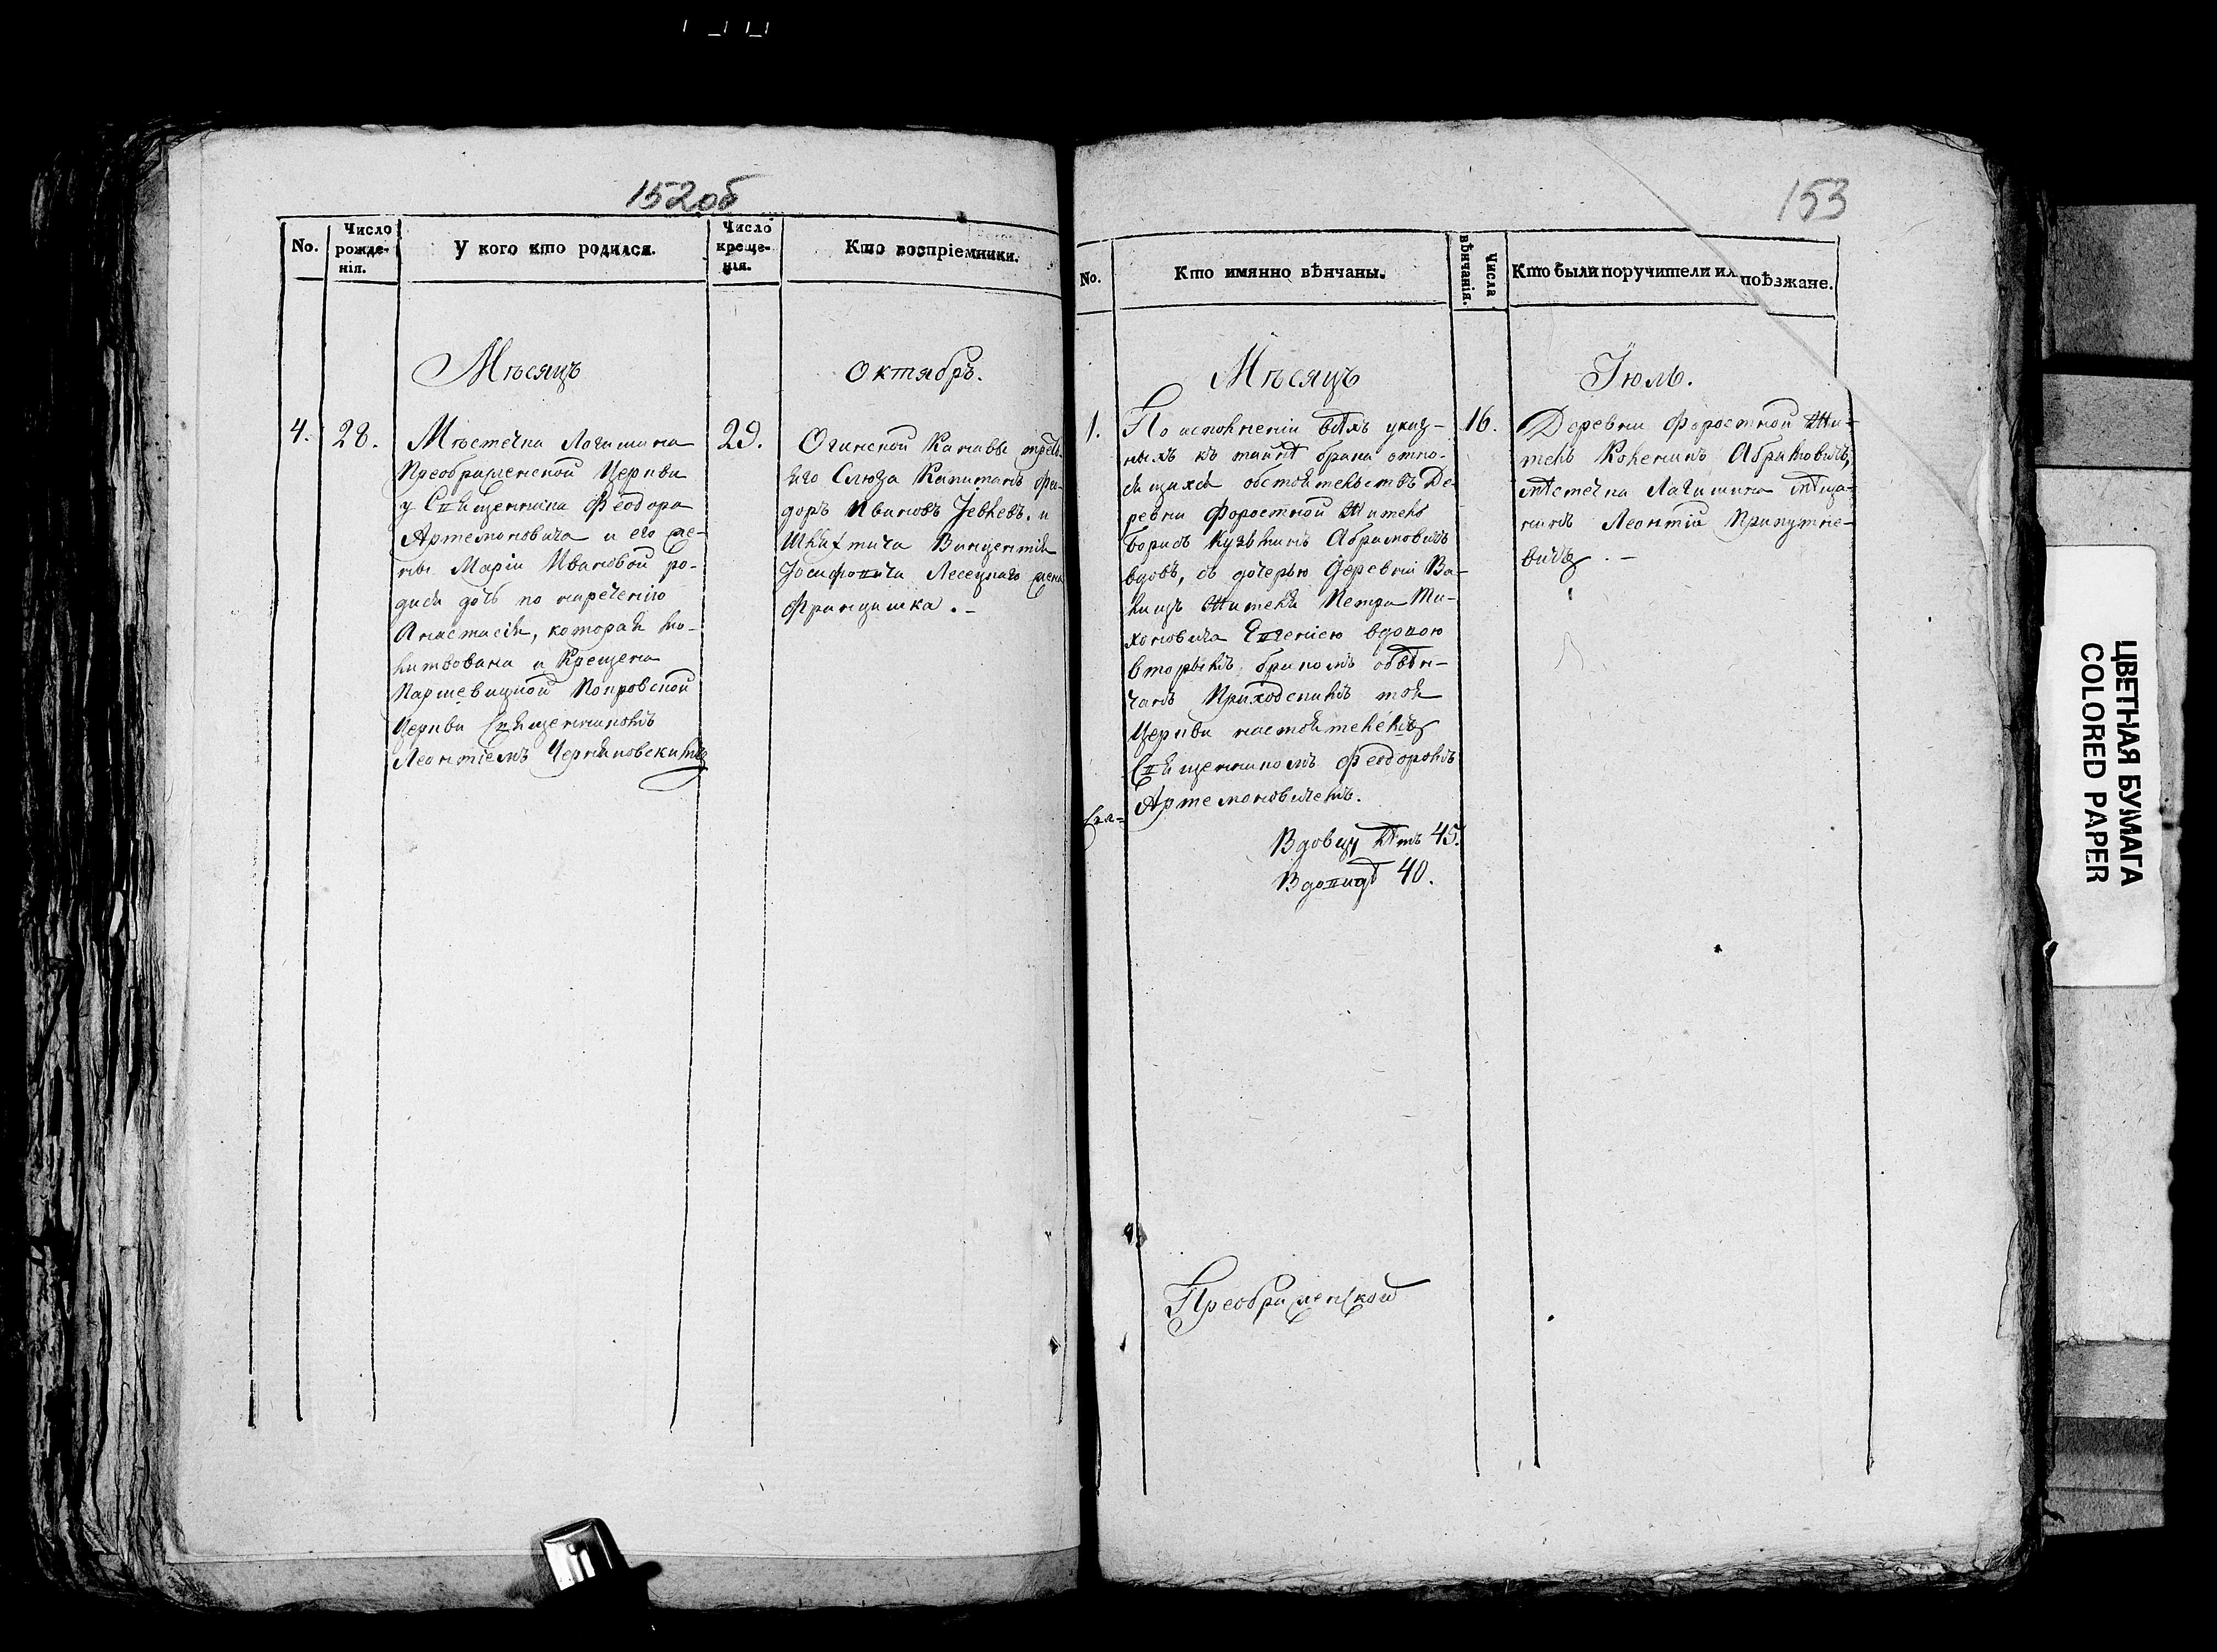 152об
No.
Число рожде-нія.
У кого кто родился.
Число креще-нія.
Кто воспріемники.
Мѣсяцъ
Октябръ.
4.
28.
Мѣстечка Логишина
Преображенской Церкви
у Священника Феодора
Артемоновича и его же-
ны Маріи Ивановой ро-
дися дочь по наречению
Анастасія, которая мо-
литвована и Крещена
Паршевицкой Покровской
Церкви Священникомъ
Леонтіемъ Черняковскимъ
29.
Огинской Канавы треть-
яго Слюза Капитанъ Фе-
доръ Ивановъ и
Шляхтича Викентія
Іосифовича Лесецкаго жена
Францишка. -
153
No.
Кто имянно вѣнчаны.
Числа вѣнчанія.
Кто были поручители ил поѣзжане.
Мѣсяцъ
Іюль.
1.
По исполненіи всѣхъ указ-
ныхъ къ тайнѣ брака отно-
сящихся обстоятельствъ де-
ревни Форостной Житель
Борисъ Кузьминъ Абрамовичъ
вдовъ, съ дочерью деревни Ва-
лищъ Жителя Петра Ти-
хоновича Евгеніею вдовою
вторымъ бракомъ обвѣн-
чанъ Приходскимъ тоя
Церкви настоятелемъ
Священникомъ Феодоромъ
Артемоновичемъ.
Вдовцу лѣтъ 45.
Вдовицѣ 40.
16.
Деревни Форостной Жи-
тель Абрамовичъ,
мѣстечка Логишина мѣща-
нинъ Леонтій Прикутне-
вичъ. -
Свя-
Преображенской
ЦВЕТНАЯ БУМАГА
COLORED PAPER